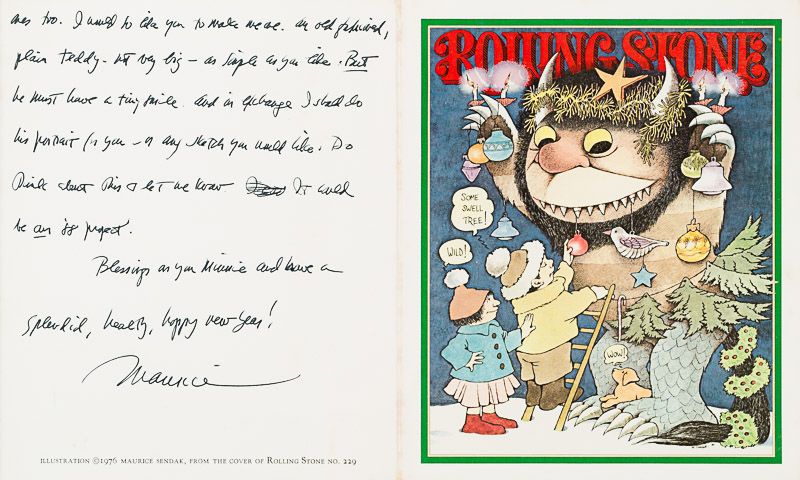 ones too. I would so like you to make me one. an old fashioned,
plain teddy - not very big - as simple as you like. But
he must have a tiny smile. And in exchange I should do
his portrait for you - or any sketch you would like. Do
think about this & let me know It could
be an '88 project.
Blessings on you Minnie and have a
splendid, healthy, happy new year!
Maurice
ILLUSTRATION ©1976 MAURICE SENDAK, FROM THE COVER OF ROLLING STONE NO. 229
ROLLING STONE
SOME
SWELL
TREE!
WILD!
WOW!